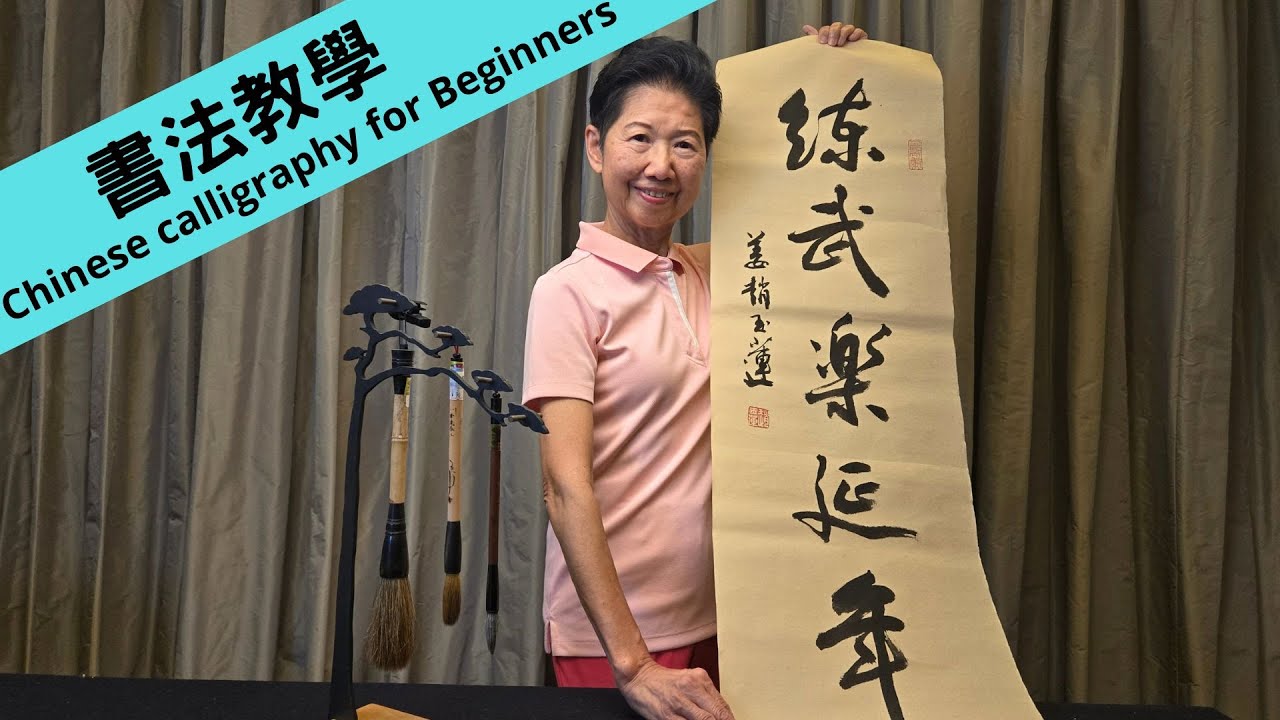 書法教學
Chinese calligraphy for Beginners
练武楽延年
姜趙玉蓮